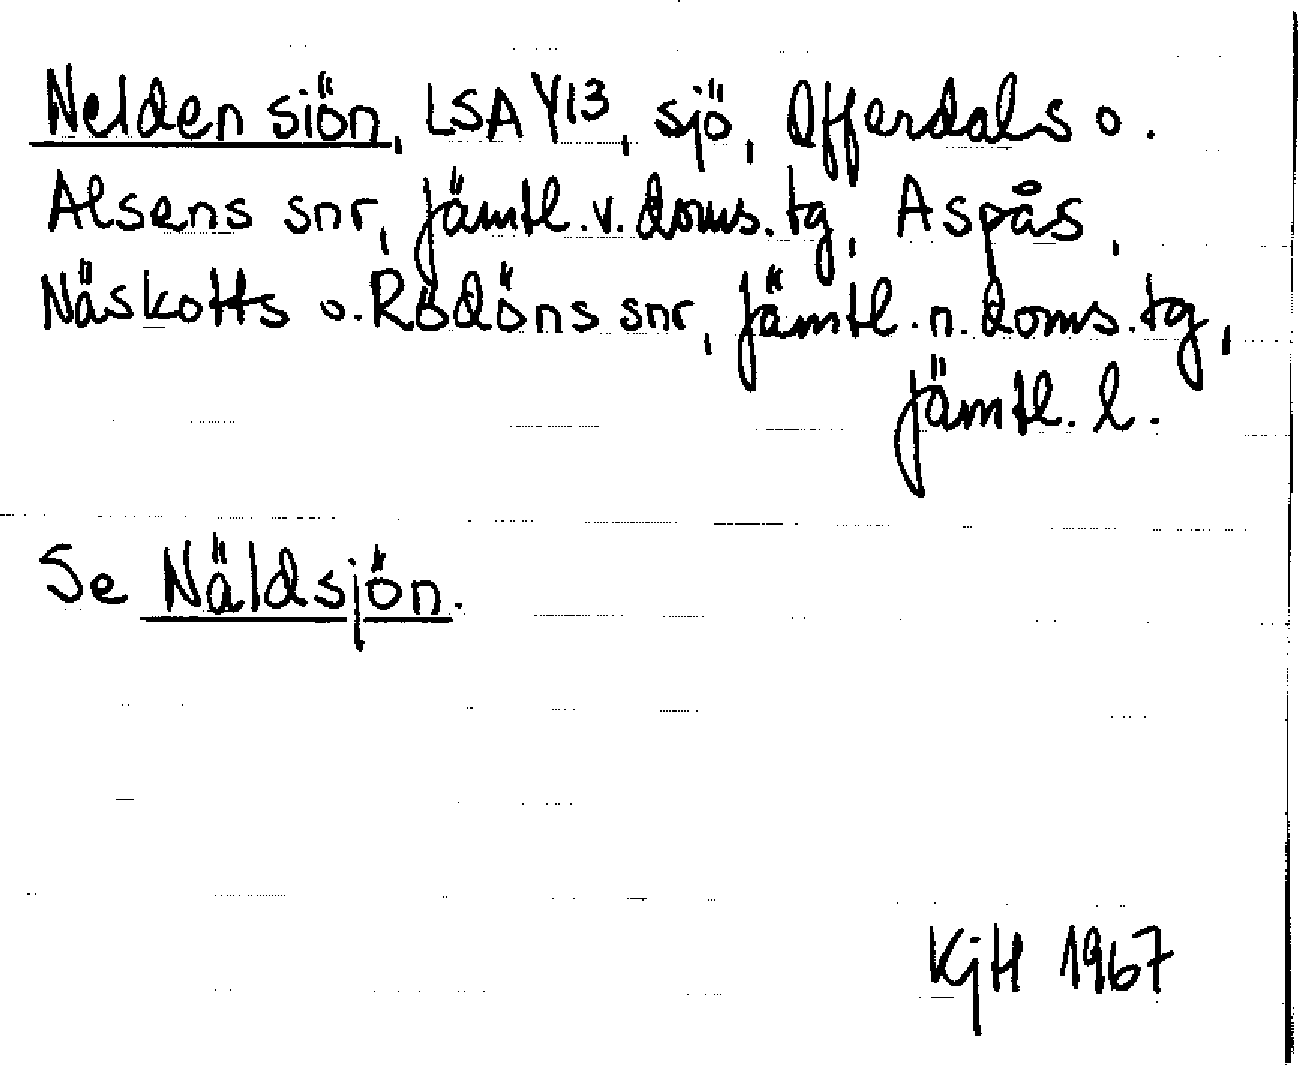 Nelden siön, LSA Y13, sjö, Offerdals o.
Alsens snr, Jämtl. v. doms. tg, Aspås,
Näskotts o. Rödöns snr, Jämtl. n. doms. tg,
Jämtl. l.
Se Näldsjön.
KjH 1967